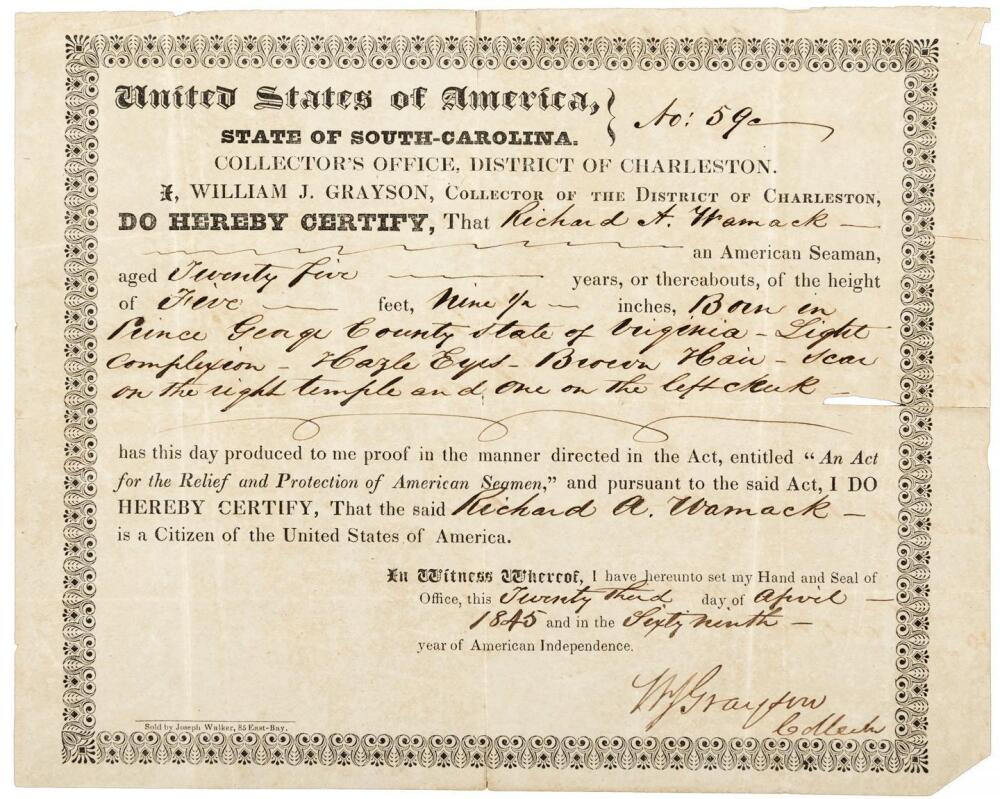 United States of America, } No: 590
STATE OF SOUTH-CAROLINA.
COLLECTOR'S OFFICE, DISTRICT OF CHARLESTON.
I, WILLIAM J. GRAYSON, COLLECTOR OF THE DISTRICT OF CHARLESTON,
DO HEREBY CERTIFY, That Richard A. Wamack —
an American Seaman,
aged Twenty five — years, or thereabouts, of the height
of Five — feet, Nine 1/2 — inches, Born in
Prince George County State of Virginia - Light
Complexion - Hazle Eyes - Brown Hair - Scar
on the right temple and one on the left cheek -
has this day produced to me proof in the manner directed in the Act, entitled "An Act
for the Relief and Protection of American Seamen," and pursuant to the said Act, I DO
HEREBY CERTIFY, That the said Richard A. Wamack —
is a Citizen of the United States of America.
In Witness Whereof, I have hereunto set my Hand and Seal of
Office, this Twenty third day of April —
1845 and in the Sixty ninth —
year of American Independence.
WJGrayson
Collector
Sold by Joseph Walker, 85 East-Bay.